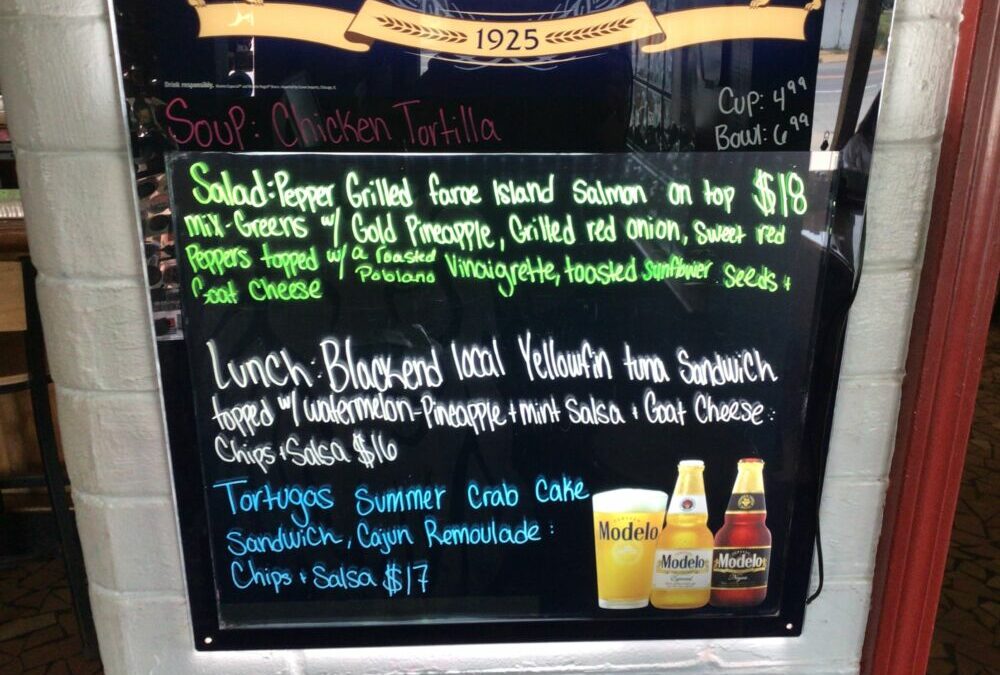 1925
Drink responsibly.
Soup: Chicken Tortilla
Cup: 4.99
Bowl: 6.99
Salad: Pepper Grilled faroe Island Salmon on top $18
mix-Greens w/ Gold Pineapple, Grilled red onion, sweet red
Peppers topped w/ a roasted Poblano Vinaigrette, toasted sunflower seeds +
Goat Cheese
Lunch: Blackend local Yellowfin tuna Sandwich
topped w/ watermelon-Pineapple + mint Salsa + Goat Cheese:
Chips + Salsa $16
Tortugas Summer Crab Cake
Sandwich, Cajun Remoulade:
Chips + Salsa $17
Modelo
Modelo
Especial
Modelo
Negra